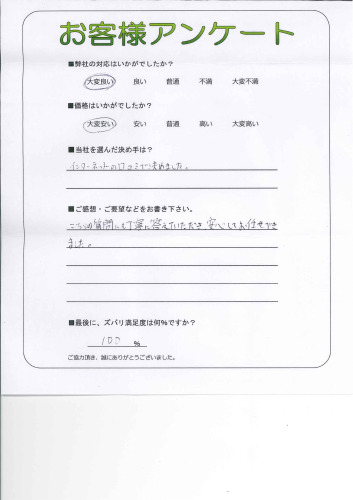 お客様アンケート
■弊社の対応はいかがでしたか？
大変良い 良い 普通 不満 大変不満
■価格はいかがでしたか？
大変安い 安い 普通 高い 大変高い
■当社を選んだ決め手は？
インターネットの口コミで決めました。
■ご感想・ご要望などをお書き下さい。
こちらの質問にも丁寧に答えていただき、安心してお任せでき
ました。
■最後に、ズバリ満足度は何%ですか？
100 %
ご協力頂き、誠にありがとうございました。